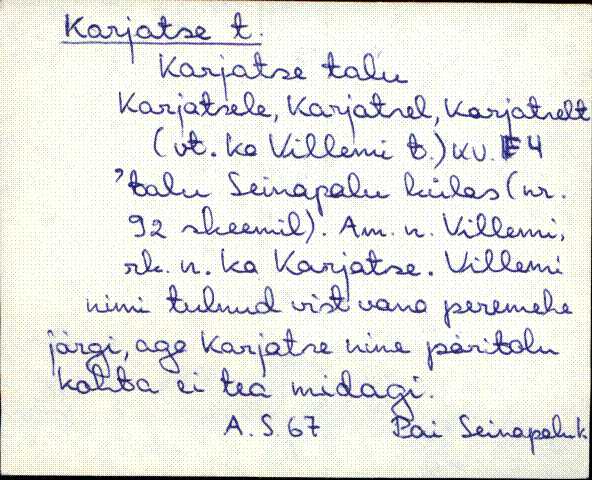 Karjatse t.
Karjatse talu
Karjatsele, Karjatsel, Karjatselt
(vt. ka Villemi t.) KV. F4
'talu Seinapalu külas (nr.
92 skeemil). Am. n. Villemi,
rk. n. ka Karjatse. Villemi
nimi tulnud vist vana peremehe
järgi, aga Karjatse nime päritolu
kohta ei tea midagi.
A. S. 67 Pai Seinapaluk